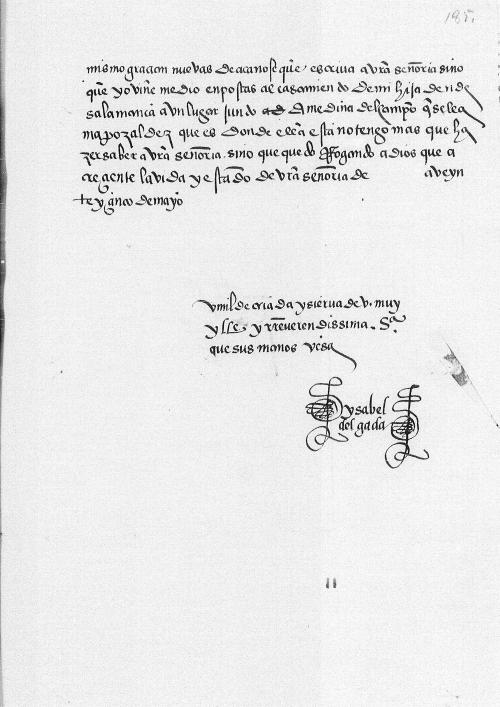 185.
mismo gracian nuevas de aca no se que escriva a vra señoria sino
que yo vine medio en postas al casamiento de mi hija dende
salamanca a un lugar jundo a d medina del campo q se lla
ma pozaldez que es donde ella esta no tengo mas que ha
zer saber a vra señoria sino que quedo Rogando a dios que a
creçiente la vida y estado de vra señoria de a veyn
te y çinco de mayo
vmilde criada y sierva de v. muy
ylle y rreverendissima Sª
que sus manos vesa
ysabel
delgada